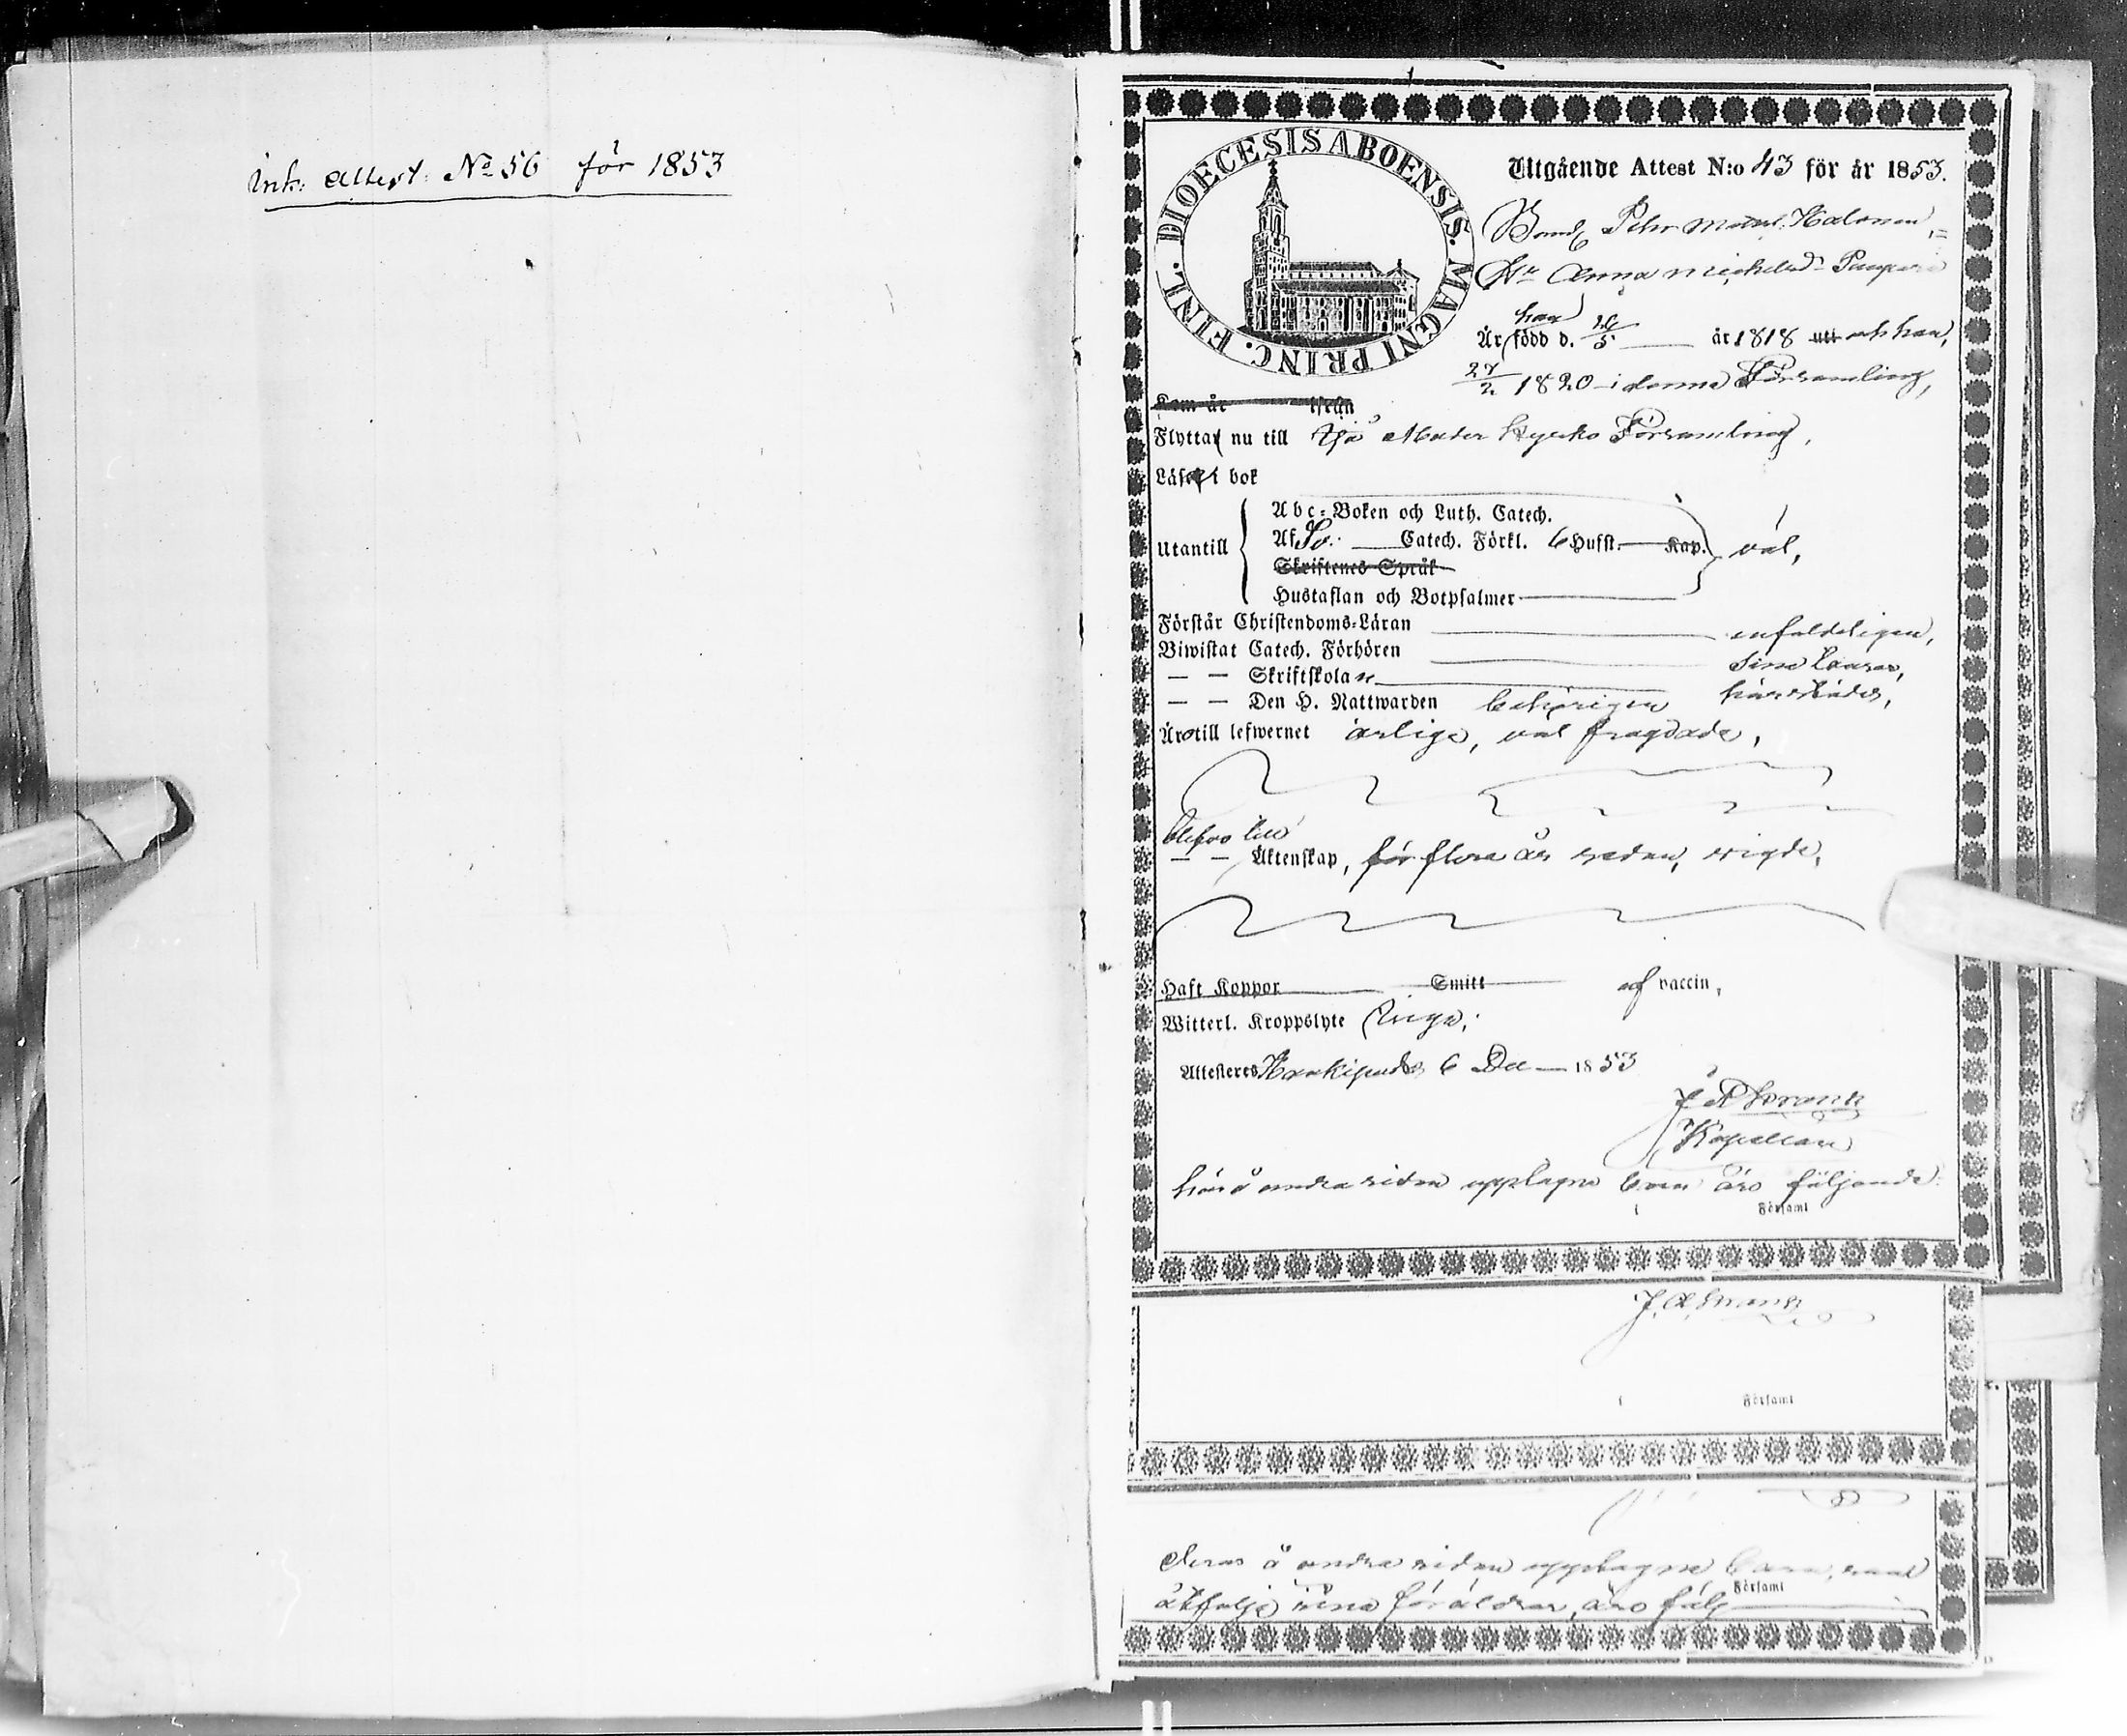 Ink. attest. No 56 för 1853
DIOECESIS ABOENSIS. MAGNI PRINC. FINL.
Utgående Attest N:o 43 för år 1853.
Bond. Pehr Halonen,
Hu Anna Michelsd:
han
Är född d. 26/5 år 1818 uti och hon,
27/2 1820 i denna Församling,
Kom år ifrån
Flytta nu till Moder kyrko Församling,
Läser i bok
Abc-Boken och Luth. Catech.
Utantill Af Sv. Catech. Förkl. 6 Hufst. Kap. väl,
Skriftenes Språk
Hustaflan och Botpsalmer
Förstår Christendoms-Läran enfaldeligen,
Biwistat Catech. Förhören sine
— — Skriftskolan
— — Den H. Nattwarden behörigen härstädes,
Äro till lefwernet ärlige, väl frägdade,
Äfwen till
— — Äktenskap, för flere år sedan, wigde,
Haft Koppor Smitt af vaccin,
Witterl. Kroppslyte Inga.
Attesteres 6 Dec 1853
Kapellan
här å andra sidan upptagne barn äro följande:
i Församl
i Församl
Deras å andra sidan upptagne barn, som
Församl
åtfölja sina föräldrar, äro följ